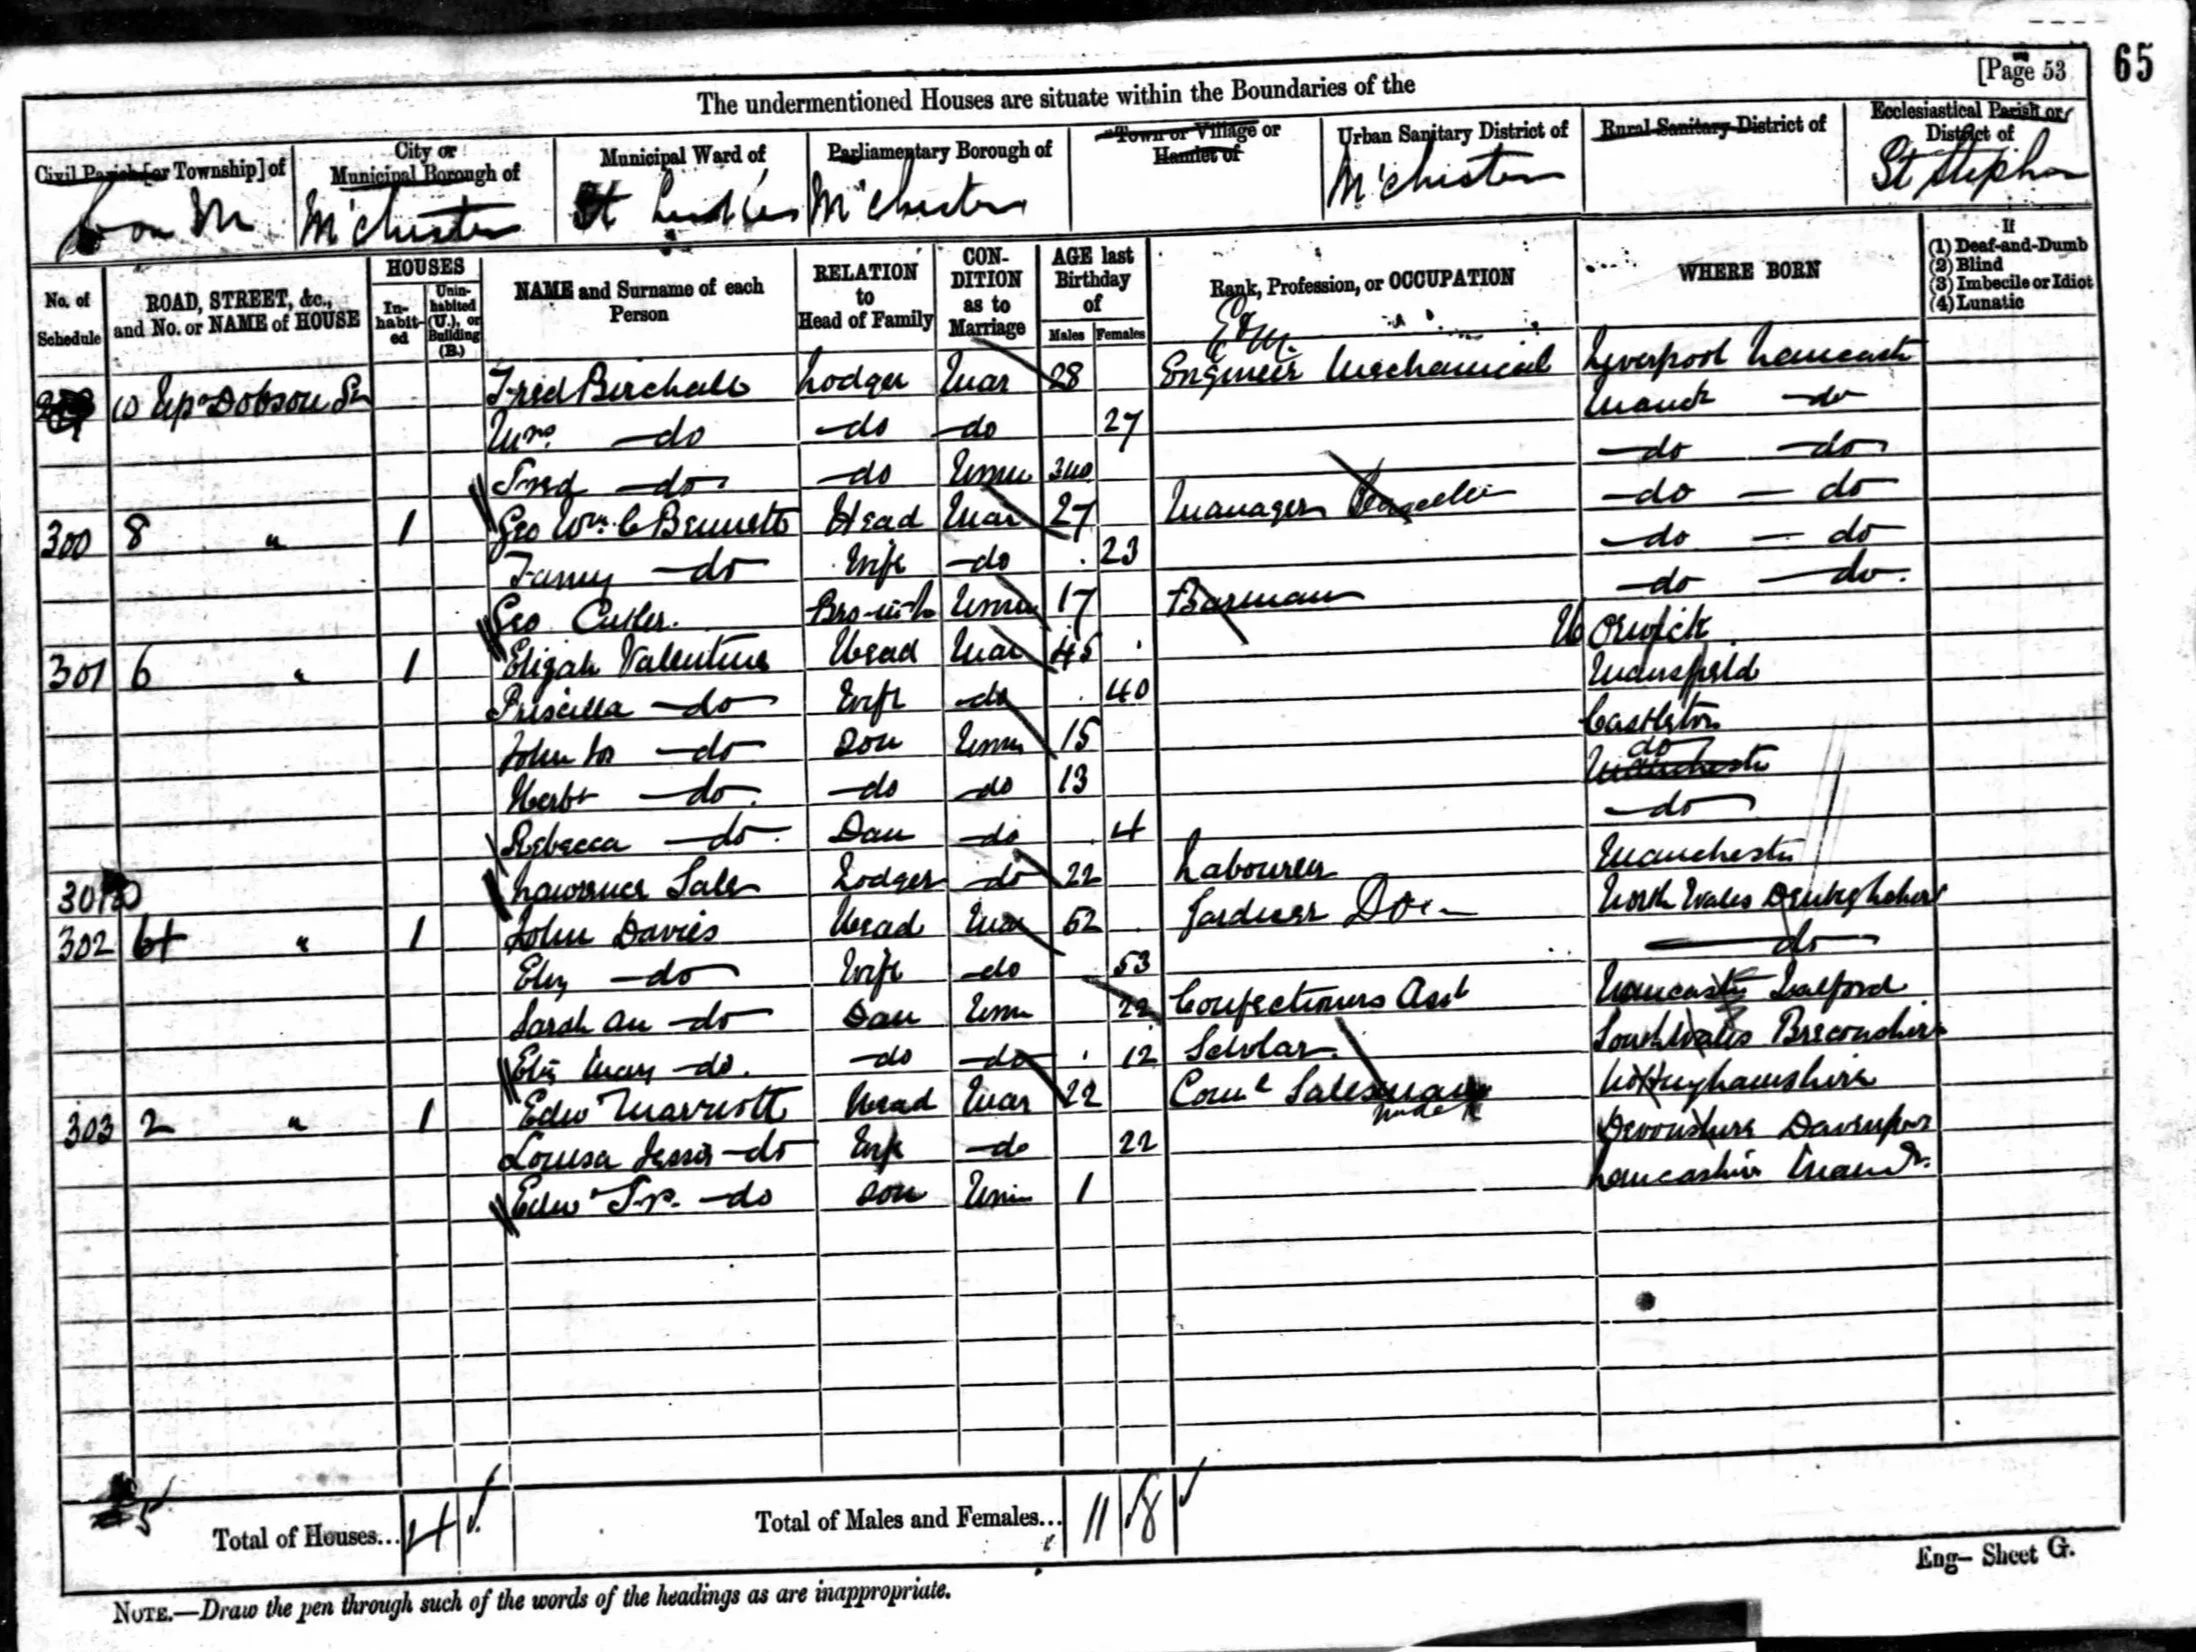 [Page 53
65
The undermentioned Houses are situate within the Boundaries of the
Civil Parish [or Township] of
City or Municipal Borough of
Municipal Ward of
Parliamentary Borough of
Town or Village or Hamlet of
Urban Sanitary District of
Rural Sanitary District of
Ecclesiastical Parish or District of
on M M'chester St M'chester M'chester St Stephen
No. of Schedule
ROAD, STREET, &c., and No. or NAME of HOUSE
HOUSES
In-habit-ed
Unin-habited (U.), or Building (B.)
NAME and Surname of each Person
RELATION to Head of Family
CON-DITION as to Marriage
AGE last Birthday of
Males Females
Rank, Profession, or OCCUPATION
WHERE BORN
If
(1) Deaf-and-Dumb
(2) Blind
(3) Imbecile or Idiot
(4) Lunatic
10 Up Dobson St Fred Birchall Lodger Mar 28 Engineer Mechanical Liverpool Lancash
Mrs do do do 27 Manch do
Fred do do Unm 3mo do do
300 8 " 1 Geo Wm C Bennett Head Mar 27 Manager do do
Fanny do Wife do 23 do do
Geo Cutler. Bro-in-lo Unm 17 Barman do do.
301 6 " 1 Elijah Valentine Head Mar 45 Horwich
Priscilla do Wife do 40 Mansfield
John do Son Unm 15 Castleton
Herbt do do do 13 do Manchester
Rebecca do Dau do 4 do
301 Lawrence Sale Lodger do 22 Labourer Manchester
302 " 1 John Davies Head Mar 62 Gardener Do North Wales Denbighshire
Eliz do Wife do 53 do
Sarah An do Dau Unm 22 Confectioners Asst Lancaster Salford
Eliz Mary do. do do 12 Scholar. South Wales Breconshire
303 2 " 1 Edwd Marriott Head Mar 22 Coml Salesman Nottinghamshire
Louisa Jessie do Wife do 22 Devonshire Davenpor
Edwd do Son Unm 1 Lancashire Manchr.
5
Total of Houses... 4
Total of Males and Females... 11 8
Eng— Sheet G.
NOTE.—Draw the pen through such of the words of the headings as are inappropriate.